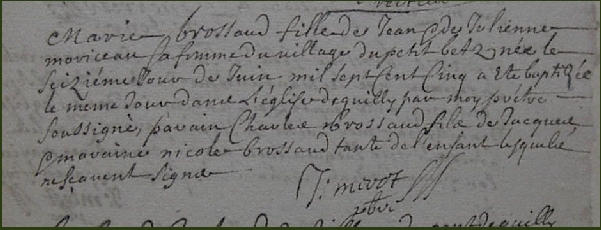 Marie brossaud fille de Jean et de Julienne
moriceau sa femme du village du petit betz née le
seiziéme Jour de Juin mil sept sent Cinq a Eté baptizée
le meme Jour dans L'église de quilly par moy prêtre
soussigné, parain Charles Brossaud fils de Jacques
et maraine nicole brossaud tante de l'enfant lesquels
ne scavent signer
pbre
de quilly